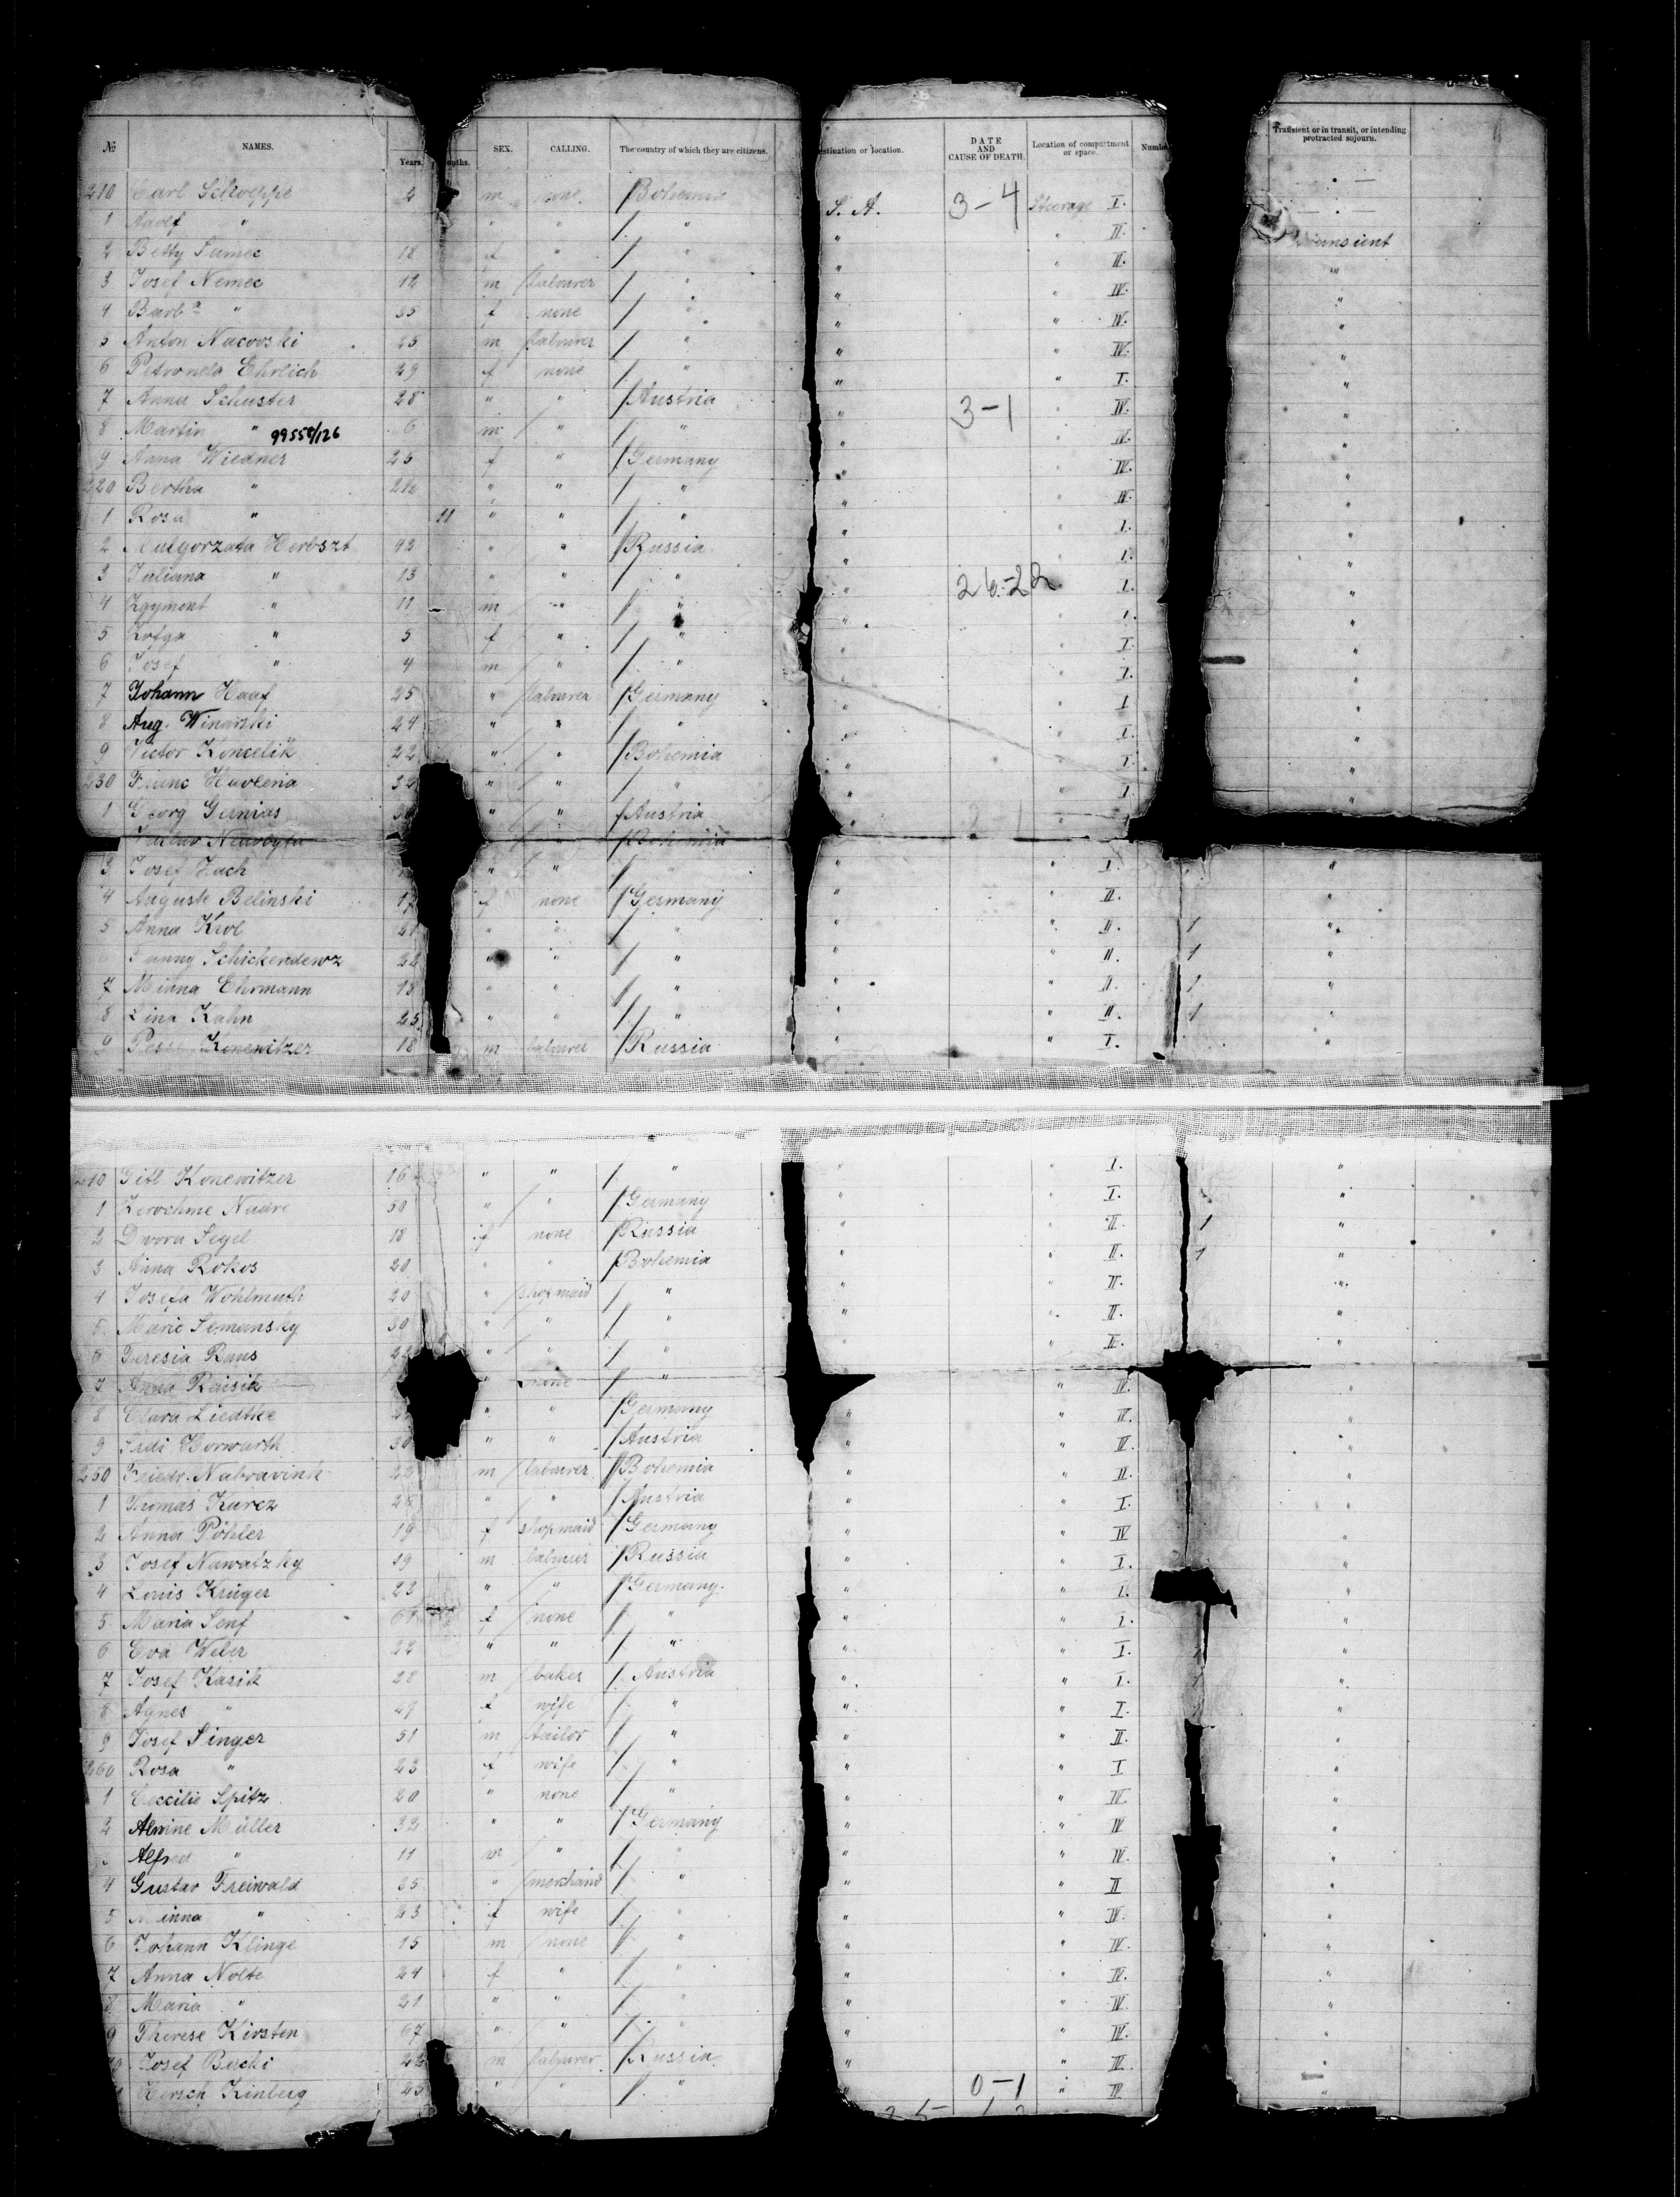 № NAMES. Years. onths. SEX. CALLING. The country of which they are citizens. stination or location. DATE AND CAUSE OF DEATH. Location of compartment or space. Numbe Transient or in transit, or intending protracted sojourn.
210 Carl Schoeppe 2 m none Bohemia S. A. 3-4 Steerage I.
1 Adolf " " " " " " II. Transient
2 Betty Samec 18 f " " " " II. "
3 Josef Nemec 12 m labourer " " " IV. "
4 Barba " 35 f none " " " IV. "
5 Anton Nacovski 25 m labourer " " IV. "
6 Petronela Ehrlich 29 f none " " " I. "
7 Anna Schuster 28 " " Austria " 3-1 " IV. "
8 Martin " 99558/126 6 m " " " " IV. "
9 Anna Wiedner 25 f " Germany " " IV. "
220 Bertha " " " " " " IV. "
1 Rosa " 11 " " " " " I. "
2 Malgorzata Herbszt 42 " " Russia " " I. "
3 Juliana " 13 " " " " 26-22 I. "
4 Zygmont " 11 m " " " " I. "
5 Zofga " 5 f " " " " I. "
6 Josef " 4 m " " " " I. "
7 Johann Haaf 25 " labourer Germany " " I "
8 Aug. Winarski 24 " " " " " I. "
9 Victor Koncelik 22 " " Bohemia " " I. "
230 Franc Havlena 32 " " " " " I. "
1 Georg Gernias " " Austria " "
Bohemia
3 Josef Zach " " " " " I. "
4 Auguste Belinski 17 f none Germany " " II. "
5 Anna Krol 21 " " " " " II. 1 "
Fanny Schickendewz 22 " " " " " II. 1 "
7 Minna Ehrmann 18 " " " " " II. 1 "
8 Lina Kahn 25 " " " " " II. 1 "
9 Konewitzer 18 m labourer Russia " " I. "
240 Gitl Konewitzer 16 " " " " " I. "
1 Zerochme Nadre 50 " " Germany " " I. "
2 Dvora Segel 18 f none Russia " " II. 1 "
3 Anna Rokos 20 " " Bohemia " " II. 1 "
4 Josefa Wohlmuth 20 " shopmaid " " II. "
5 Marie Semansky 30 " " " " " II. "
6 Theresia Raus 22 " " " " " II. "
7 Anna Raisik " none " " IV. "
8 Clara Liedtke " " Germany " " IV. "
9 Sidi Horwarth 30 " " Austria " " IV. "
250 Friedr. Nabravink m labourer Bohemia " " II. "
1 Thomas Kurez 28 " " Austria " " I. "
2 Anna Pöhler 19 f shopmaid Germany " " IV "
3 Josef Nawatzky 19 m labourer Russia " " I. "
4 Louis Krüger 23 " " Germany. " " I. "
5 Maria Senf f none " " " I. "
6 Eva Weber 22 " " " " " I. "
7 Josef Kasik 28 m baker Austria " " I. 1 "
8 Agnes " 27 f wife " " " I "
9 Josef Singer 31 m tailor " " " II. "
260 Rosa " 23 f wife " " " I "
1 Caecilie Spitz 20 " none " " " IV. "
2 Alwine Müller 32 " " Germany " " IV "
Alfred " 11 m " " " " IV. "
4 Gustav Freiwald 25 " merchand " " " II "
5 Minna " 23 f wife " " " IV. "
6 Johann Klinge 15 m none " " " IV. "
7 Anna Nolte 24 f " " " " IV. "
8 Maria " 21 " " " " " IV. "
9 Therese Kirsten 67 " " " " " IV. "
Josef Berchi m labourer Russia " " IV. "
Hersch Kinberg " " " " 0-1 " IV "